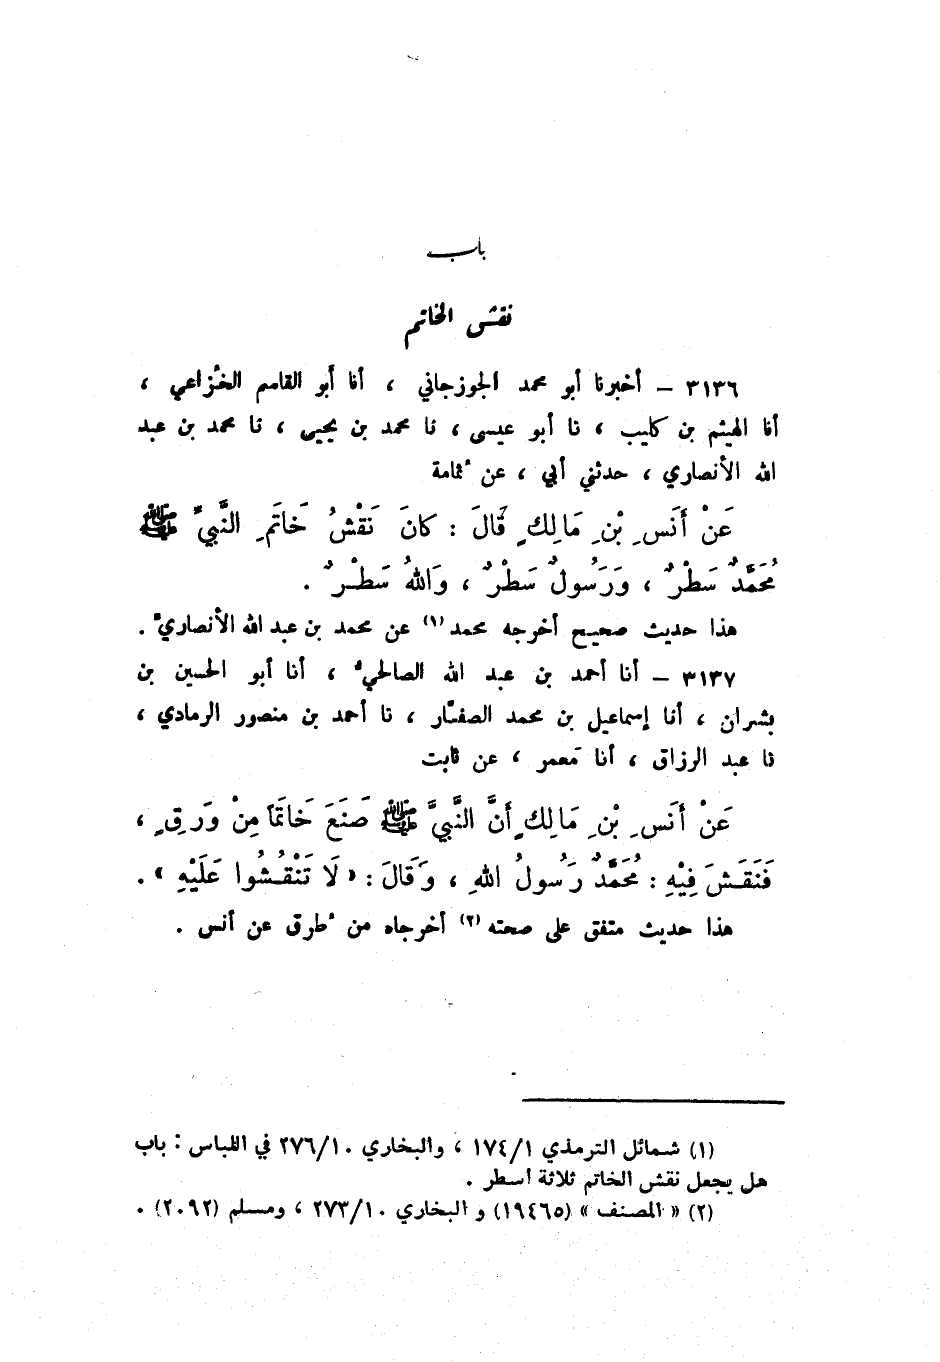 باب
نقش الخاتم
٣١٣٦ – أخبرنا أبو محمد الجوزجاني ، أنا أبو القاسم الخُزاعي ،
أنا الهيثم بن كليب ، نا أبو عيسى ، نا محمد بن يحيى ، نا محمد بن عبد
الله الأنصاري ، حدثني أبي ، عن ثُمامة
عَنْ أَنَسِ بْنِ مَالِكٍ قَالَ : كانَ نَقْشُ خَاتَمِ النَّبيِّ ﷺ
مُحَمَّدٌ سَطْرٌ ، وَرَسُولٌ سَطْرٌ ، وَاللهُ سَطْرٌ .
هذا حديث صحيح أخرجه محمد (١) عن محمد بن عبد الله الأنصاريّ .
٣١٣٧ – أنا أحمد بن عبد الله الصالحيُّ ، أنا أبو الحسين بن
بشران ، أنا إسماعيل بن محمد الصفّار ، نا أحمد بن منصور الرمادي ،
نا عبد الرزاق ، أنا مَعمر ، عن ثابت
عَنْ أَنَسِ بْنِ مَالِكٍ أَنَّ النَّبيَّ ﷺ صَنَعَ خَاتَمَاً مِنْ وَرِقٍ ،
فَنَقَشَ فِيْهِ : مُحَمَّدٌ رَسُولُ اللهِ ، وَقَالَ : « لَا تَنْقُشُوا عَلَيْهِ » .
هذا حديث متفق على صحته (٢) أخرجاه من طُرق عن أنس .
(١) شمائل الترمذي ١/١٧٤ ، والبخاري ١٠/٢٧٦ في اللباس : باب
هل يجعل نقش الخاتم ثلاثة أسطر .
(٢) « المصنف » (١٩٤٦٥) و البخاري ١٠/٢٧٣ ، ومسلم (٢٠٩٢) .